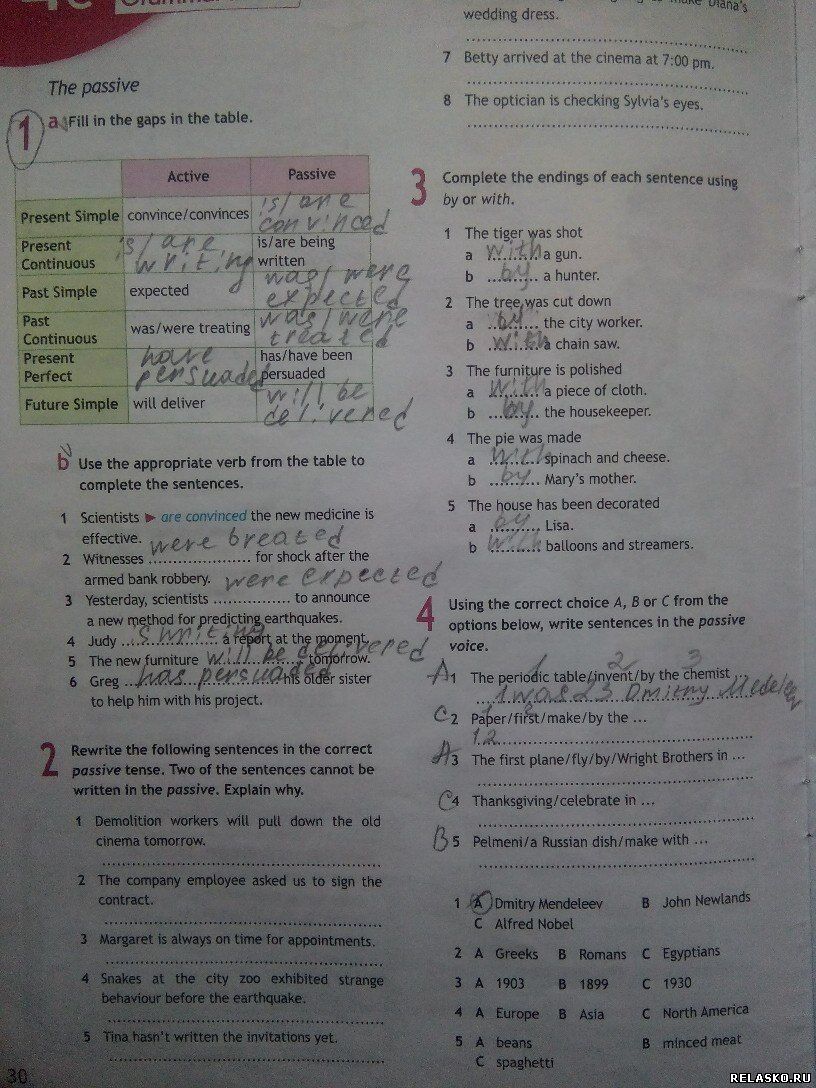 wedding dress.
7 Betty arrived at the cinema at 7:00 pm.
8 The optician is checking Sylvia's eyes.
The passive
1 a Fill in the gaps in the table.
Active Passive
Present Simple convince/convinces is/are convinced
Present Continuous is/are writing is/are being written
Past Simple expected was/were expected
Past Continuous was/were treating was/were treated
Present Perfect have persuaded has/have been persuaded
Future Simple will deliver will be delivered
b Use the appropriate verb from the table to
complete the sentences.
1 Scientists ► are convinced the new medicine is
effective. were treated
2 Witnesses .................... for shock after the
armed bank robbery. were expected
3 Yesterday, scientists ............... to announce
a new method for predicting earthquakes.
4 Judy is writing a report at the moment.
5 The new furniture will be delivered tomorrow.
6 Greg has persuaded his older sister
to help him with his project.
2 Rewrite the following sentences in the correct
passive tense. Two of the sentences cannot be
written in the passive. Explain why.
1 Demolition workers will pull down the old
cinema tomorrow.
2 The company employee asked us to sign the
contract.
3 Margaret is always on time for appointments.
4 Snakes at the city zoo exhibited strange
behaviour before the earthquake.
5 Tina hasn't written the invitations yet.
30
3 Complete the endings of each sentence using
by or with.
1 The tiger was shot
a with a gun.
b by a hunter.
2 The tree was cut down
a by the city worker.
b with a chain saw.
3 The furniture is polished
a with a piece of cloth.
b by the housekeeper.
4 The pie was made
a with spinach and cheese.
b by Mary's mother.
5 The house has been decorated
a by Lisa.
b with balloons and streamers.
4 Using the correct choice A, B or C from the
options below, write sentences in the passive
voice.
A 1 The periodic table/invent/by the chemist ...
1 was 2 3 Dmitry
C 2 Paper/first/make/by the ...
1 2
A 3 The first plane/fly/by/Wright Brothers in ...
C 4 Thanksgiving/celebrate in ...
B 5 Pelmeni/a Russian dish/make with ...
1 A Dmitry Mendeleev B John Newlands
C Alfred Nobel
2 A Greeks B Romans C Egyptians
3 A 1903 B 1899 C 1930
4 A Europe B Asia C North America
5 A beans B minced meat
C spaghetti
RELASKO.RU